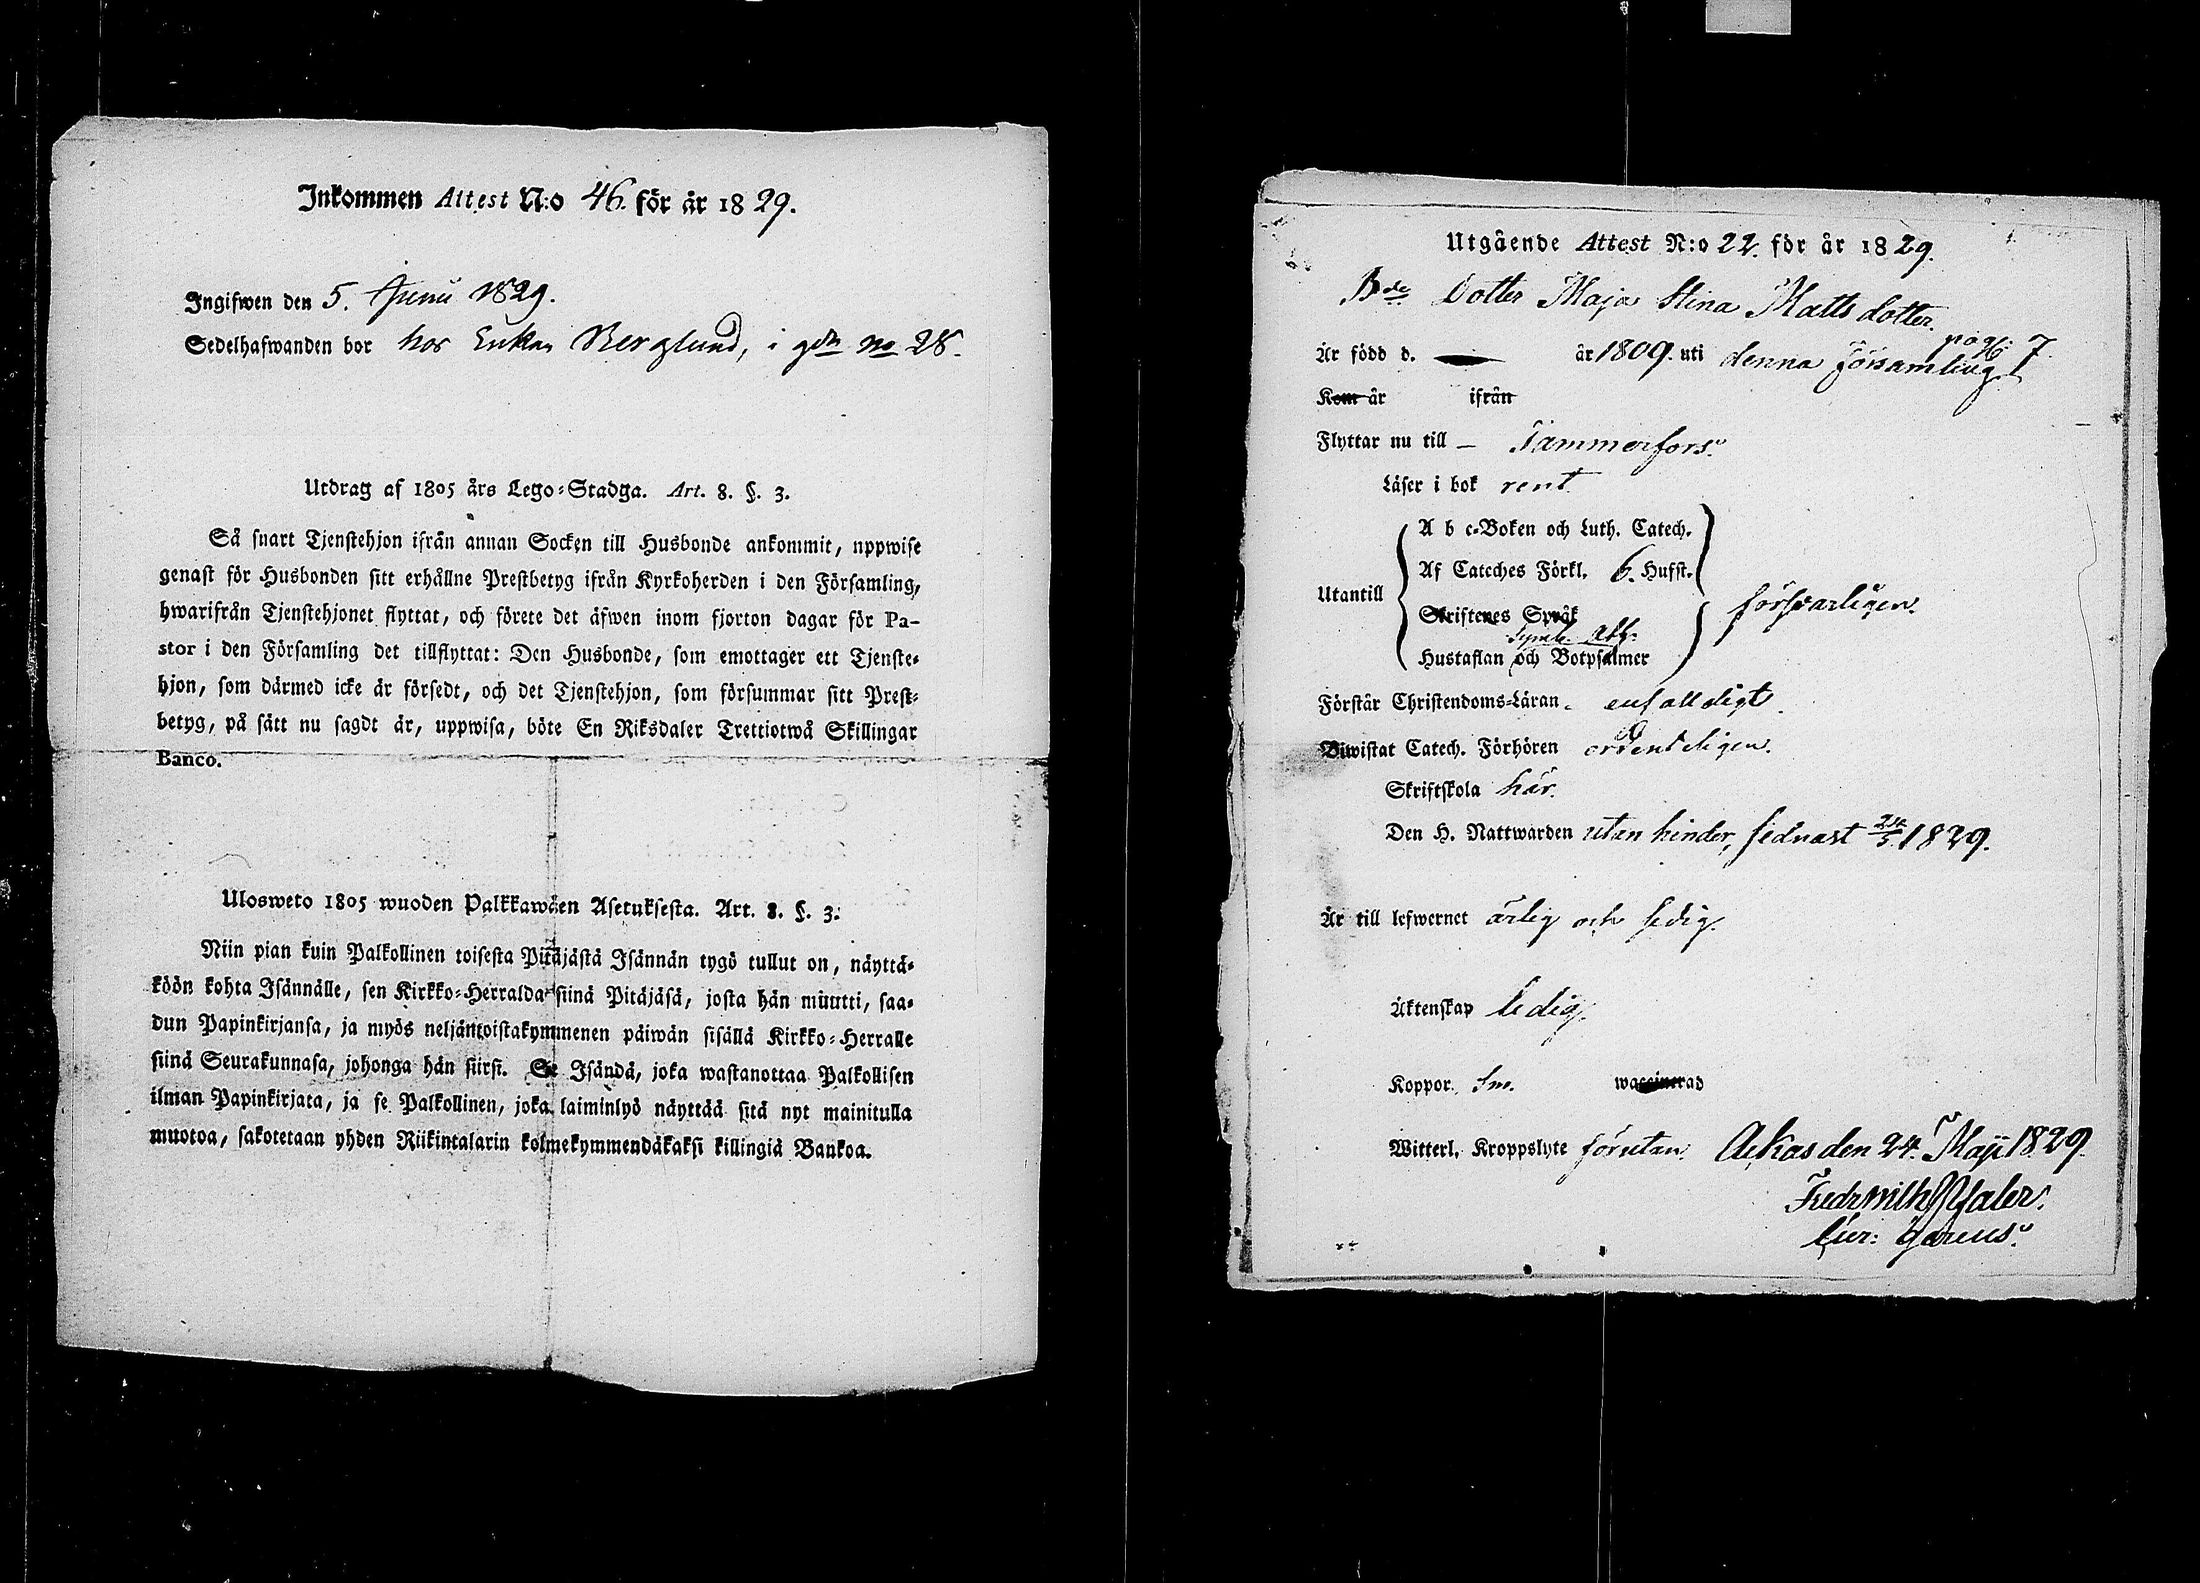 Inkommen Attest N:o 46. för år 1829.
Ingifwen den 5. Junii 1829.
Sedelhafwanden bor hos Enkan Berglund, i gdn No 28.
Utdrag af 1805 års Lego-Stadga. Art. 8. §. 3.
Så snart Tjenstehjon ifrån annan Socken till Husbonde ankommit, uppwise
genast för Husbonden sitt erhållne Prestbetyg ifrån Kyrkoherden i den Församling,
hwarifrån Tjenstehjonet flyttat, och förete det äfwen inom fjorton dagar för Pa-
stor i den Församling det tillflyttat: Den Husbonde, som emottager ett Tjenste-
hjon, som därmed icke är försedt, och det Tjenstehjon, som försummar sitt Prest-
betyg, på sätt nu sagdt är, uppwisa, böte En Riksdaler Trettiotwå Skillingar
Banco.
Ulosweto 1805 wuoden Palkkawäen Asetuksesta. Art. 8. §. 3.
Niin pian kuin Palkollinen toisesta Pitäjästä Isännän tygö tullut on, näyttä-
köön kohta Isännälle, sen Kirkko-Herralda siinä Pitäjäsä, josta hän muutti, saa-
dun Papinkirjansa, ja myös neljäntoistakymmenen päiwän sisällä Kirkko-Herralle
siinä Seurakunnasa, johonga hän siirsi. Se Isändä, joka wastanottaa Palkollisen
ilman Papinkirjata, ja se Palkollinen, joka laiminlyö näyttää sitä nyt mainitulla
muotoa, sakotetaan yhden Riikintalarin kolmekymmendäkaksi killingiä Bankoa.
Utgående Attest N:o 22. för år 1829.
Bde Dotter Maja Stina Matts dotter.
pag. 7.
Är född d. år 1809. uti denna församling
Kom år ifrån
Flyttar nu till – Tammerfors.
Läser i bok rent.
A b c-Boken och Luth. Catech.
Af Cateches Förkl. 6. Hufst.
Utantill försvarligen.
Skriftenes Språk
Symb. Ath.
Hustaflan och Botpsalmer
Förstår Christendoms-Läran. enfaldigt.
Biwistat Catech. Förhören ordenteligen.
Skriftskola här.
Den H. Nattwarden utan hinder, sednast 24/5 1829.
Är till lefwernet ärlig och sedig.
Äktenskap ledig.
Koppor. waccinerad
Witterl. Kroppslyte förutan. Ackas den 24. Maji 1829.